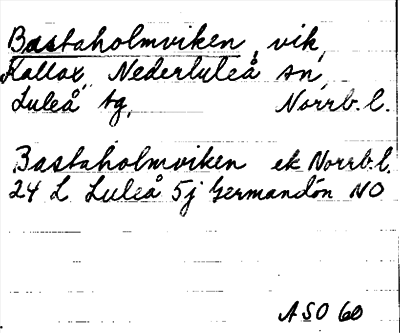 Bastaholmviken, vik,
Kallax, Nederluleå sn,
Luleå tg, Norrb. l.
Bastaholmviken ek Norrb. l.
24 L Luleå 5j Germandön NO
ASO 60